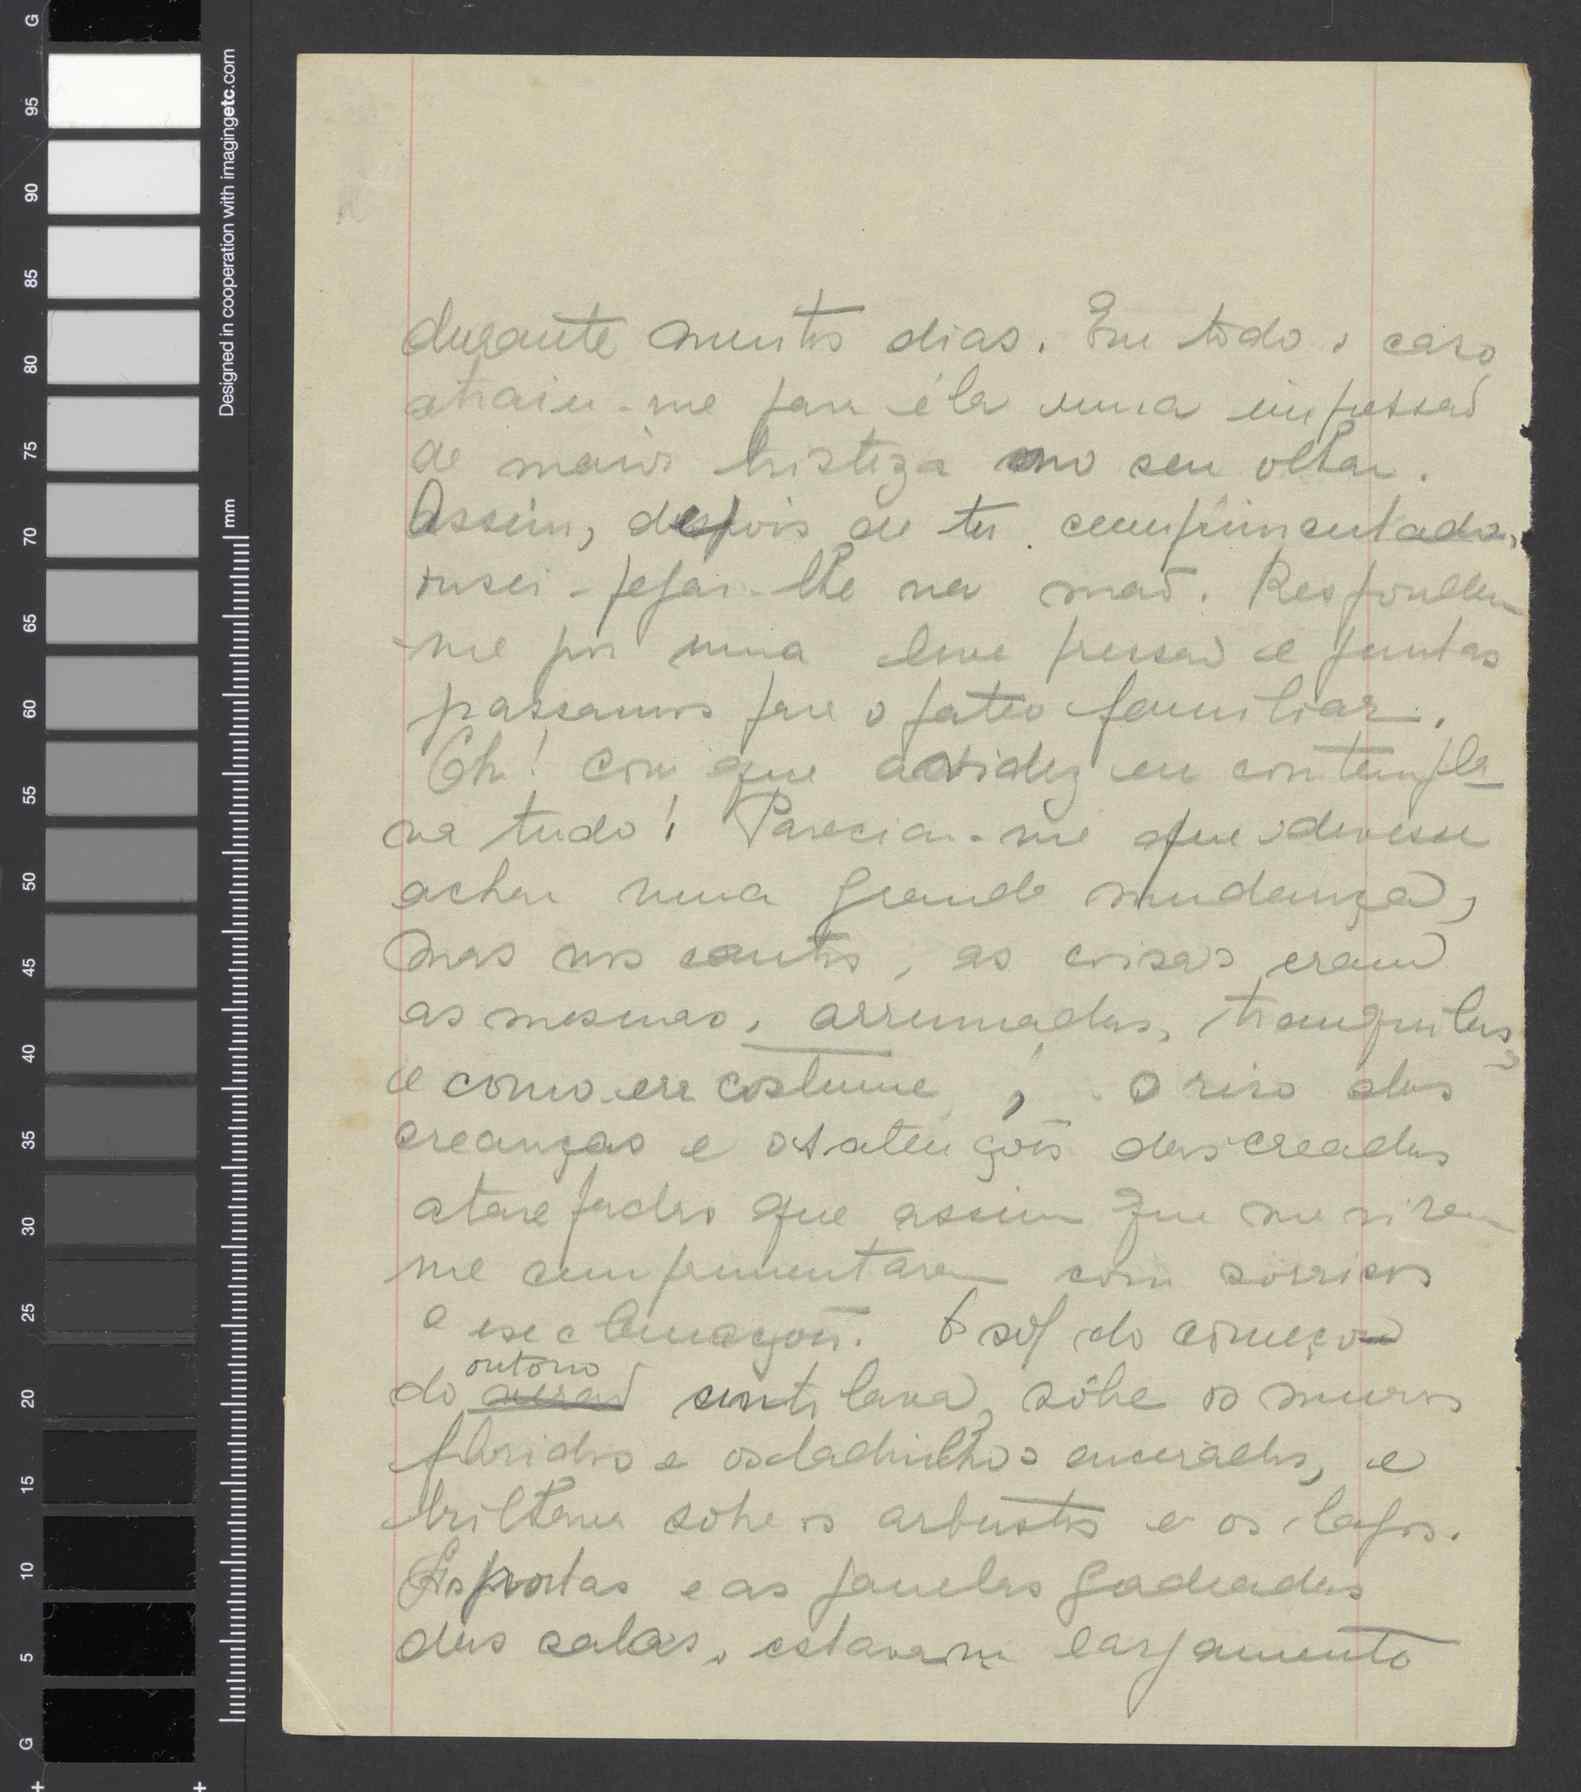 G
95
90
85
80
75
70
65
60
55
50
45
40
35
30
25
20
15
10
5
G
Designed in cooperation with imagingetc.com
mm
durante muitos dias. Em todo o caso
atraiu-me para éla uma impressaõ
de maior tristeza no seu olhar.
Assim, depois de ter cumprimentado,
ousei-pegar-lhe na maõ. Respondeu
-me por uma leve pressaõ e juntas
passamos para o pateo familiar.
Oh! com que avidez eu contempla
va tudo! Parecia-me que devesse
achar uma grande mudança,
mas nos cantos, as coisas eram
as mesmas, arrumadas, tranquilas,
e como era costume, o riso das
creanças e as atençois das creadas
atarefadas que assim que me viram
me cumprimentaram com sorrisos
e esclamaçois. O sol do começo
do outono veraõ sintilava, sôbre os muros
floridos e os ladrilhos encerados, e
brilhava sobre os arbustos e os lagos.
As portas e as janelas gradeadas
das salas, estavam largamente